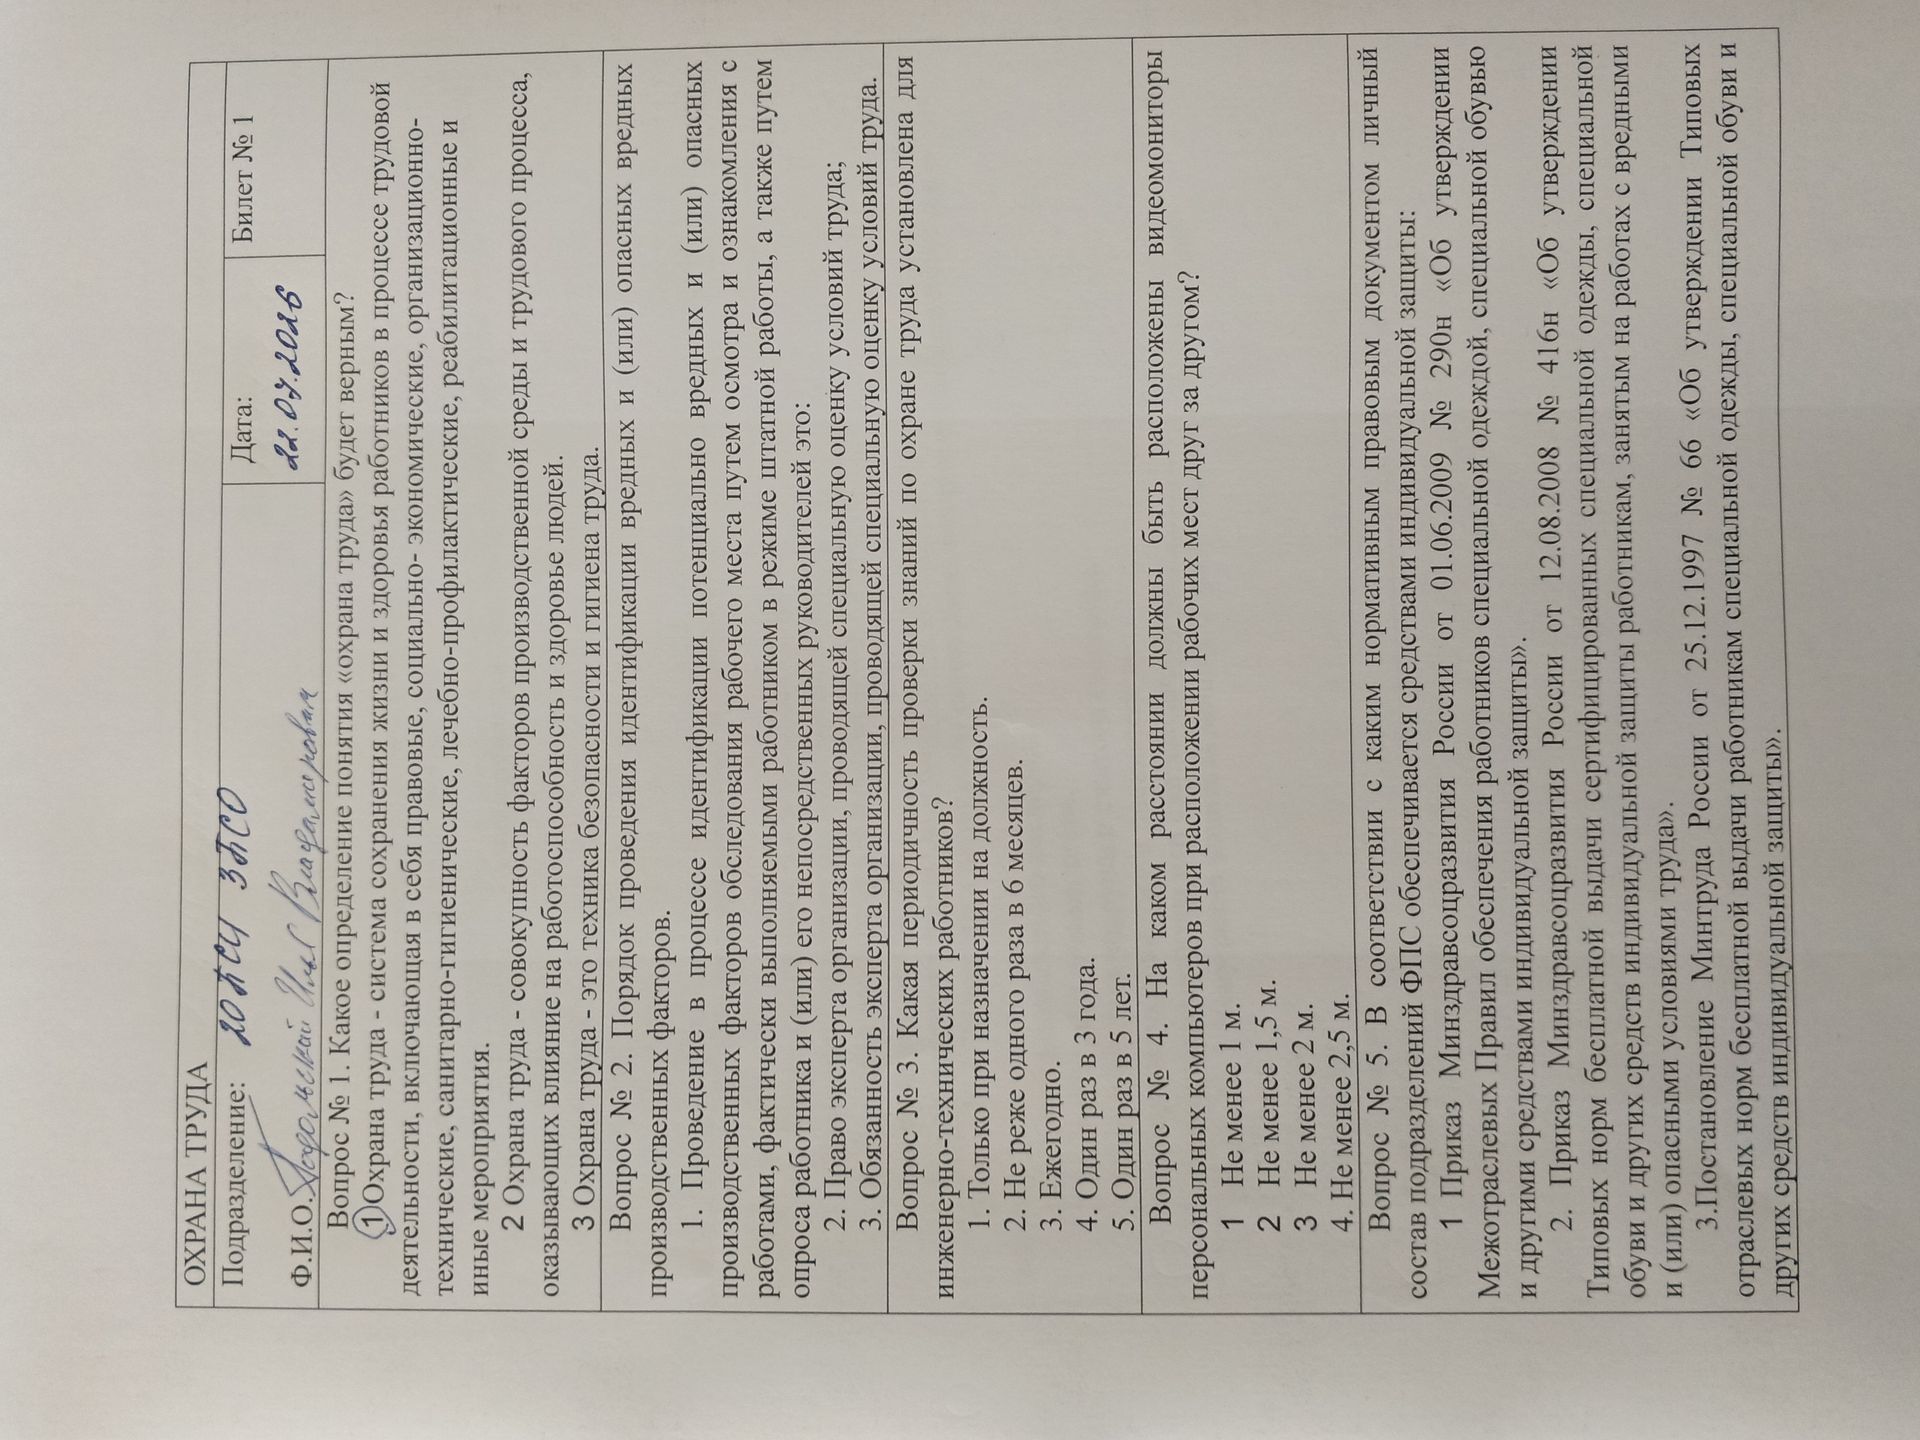 ОХРАНА ТРУДА
Подразделение: 20ПСЧ 3ПСО
Ф.И.О. Подольский Владимирович
Дата:
22.04.2026
Билет № 1
Вопрос № 1. Какое определение понятия «охрана труда» будет верным?
1 Охрана труда - система сохранения жизни и здоровья работников в процессе трудовой
деятельности, включающая в себя правовые, социально- экономические, организационно-
технические, санитарно-гигиенические, лечебно-профилактические, реабилитационные и
иные мероприятия.
2 Охрана труда - совокупность факторов производственной среды и трудового процесса,
оказывающих влияние на работоспособность и здоровье людей.
3 Охрана труда - это техника безопасности и гигиена труда.
Вопрос № 2. Порядок проведения идентификации вредных и (или) опасных вредных
производственных факторов.
1. Проведение в процессе идентификации потенциально вредных и (или) опасных
производственных факторов обследования рабочего места путем осмотра и ознакомления с
работами, фактически выполняемыми работником в режиме штатной работы, а также путем
опроса работника и (или) его непосредственных руководителей это:
2. Право эксперта организации, проводящей специальную оценку условий труда;
3. Обязанность эксперта организации, проводящей специальную оценку условий труда.
Вопрос № 3. Какая периодичность проверки знаний по охране труда установлена для
инженерно-технических работников?
1. Только при назначении на должность.
2. Не реже одного раза в 6 месяцев.
3. Ежегодно.
4. Один раз в 3 года.
5. Один раз в 5 лет.
Вопрос № 4. На каком расстоянии должны быть расположены видеомониторы
персональных компьютеров при расположении рабочих мест друг за другом?
1 Не менее 1 м.
2 Не менее 1,5 м.
3 Не менее 2 м.
4. Не менее 2,5 м.
Вопрос № 5. В соответствии с каким нормативным правовым документом личный
состав подразделений ФПС обеспечивается средствами индивидуальной защиты:
1 Приказ Минздравсоцразвития России от 01.06.2009 № 290н «Об утверждении
Межотраслевых Правил обеспечения работников специальной одеждой, специальной обувью
и другими средствами индивидуальной защиты».
2. Приказ Минздравсоцразвития России от 12.08.2008 № 416н «Об утверждении
Типовых норм бесплатной выдачи сертифицированных специальной одежды, специальной
обуви и других средств индивидуальной защиты работникам, занятым на работах с вредными
и (или) опасными условиями труда».
3.Постановление Минтруда России от 25.12.1997 № 66 «Об утверждении Типовых
отраслевых норм бесплатной выдачи работникам специальной одежды, специальной обуви и
других средств индивидуальной защиты».